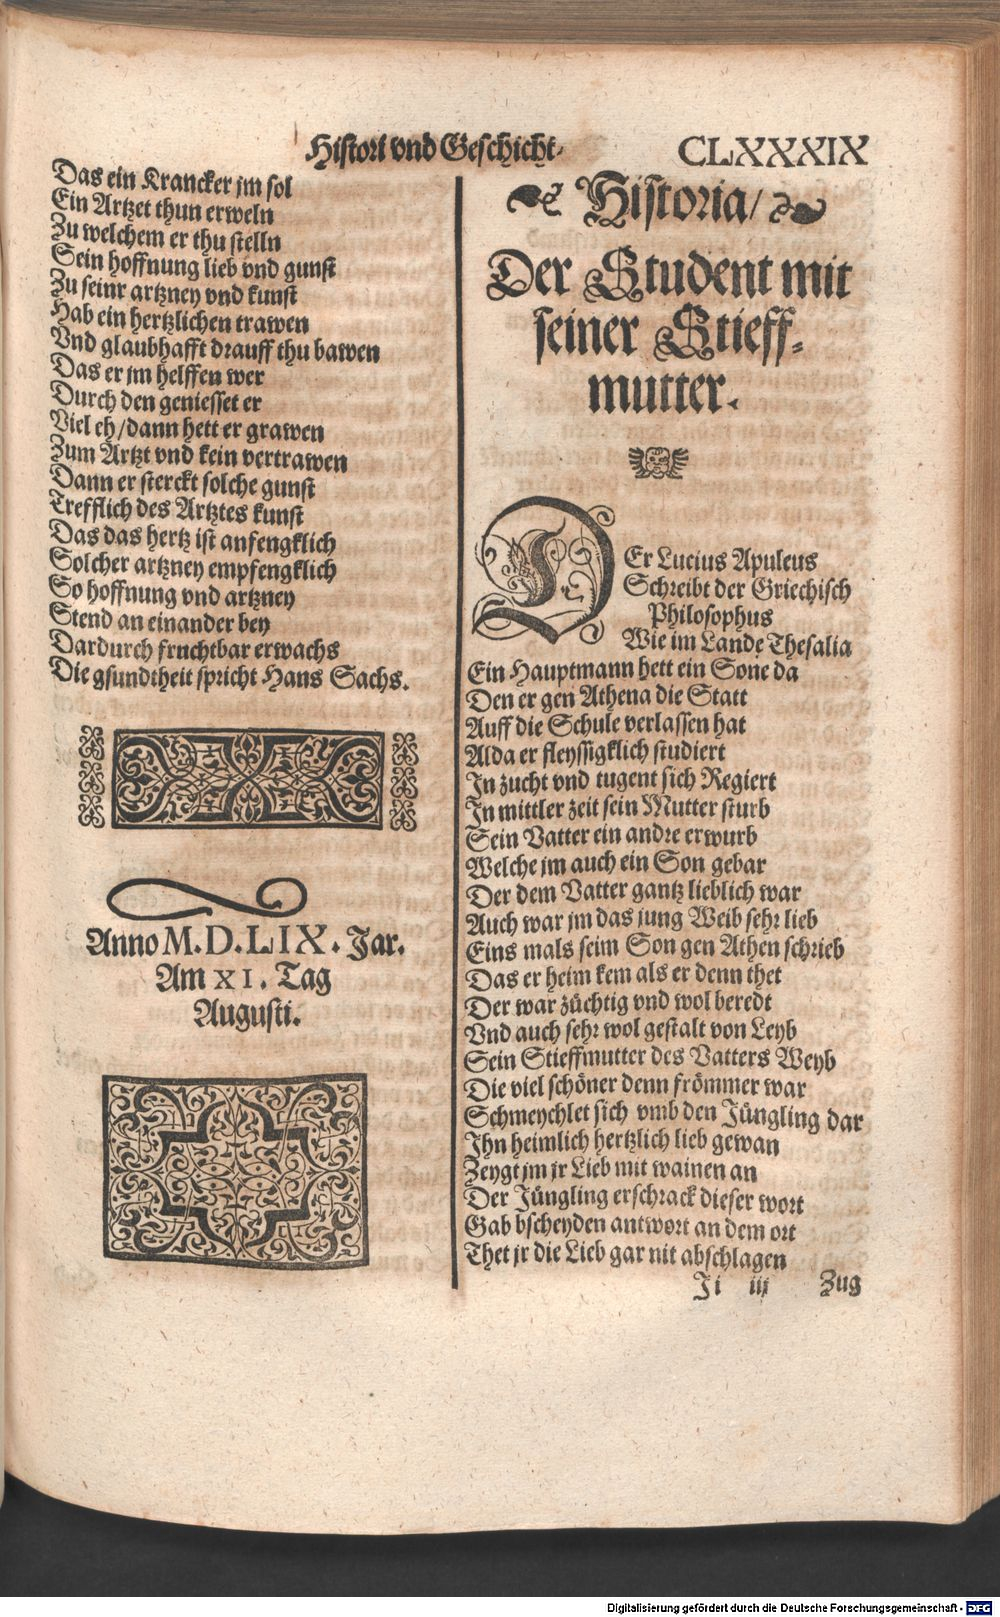 Histori vnd Geschicht. CLXXXIX
Das ein Krancker jm sol
Ein Artzet thun erweln
Zu welchem er thu stelln
Sein hoffnung lieb vnd gunst
Zu seinr artzney vnd kunst
Hab ein hertzlichen trawen
Vnd glaubhafft drauff thu bawen
Das er jm helffen wer
Durch den geniesset er
Viel eh/dann hett er grawen
Zum Artzt vnd kein vertrawen
Dann er sterckt solche gunst
Trefflich des Artztes kunst
Das das hertz ist anfengklich
Solcher artzney empfengklich
So hoffnung vnd artzney
Stend an einander bey
Dardurch frnchtbar erwachs
Die gsundtheit spricht Hans Sachs.
Anno M.D.LIX. Jar.
Am XI. Tag
Augusti.
Historia/
Der Student mit
seiner Stieff-
mutter.
DEr Lucius Apuleus
Schreibt der Griechisch
Philosophus
Wie im Lande Thesalia
Ein Hauptmann hett ein Sone da
Den er gen Athena die Statt
Auff die Schule verlassen hat
Alda er fleyssigklich studiert
In zucht vnd tugent sich Regiert
In mittler zeit sein Mutter sturb
Sein Vatter ein andre erwurb
Welche jm auch ein Son gebar
Der dem Vatter gantz lieblich war
Auch war jm das jung Weib sehr lieb
Eins mals seim Son gen Athen schrieb
Das er heim kem als er denn thet
Der war züchtig vnd wol beredt
Vnd auch sehr wol gestalt von Leyb
Sein Stieffmutter des Vatters Weyb
Die viel schöner denn frömmer war
Schmeychlet sich vmb den Jüngling dar
Ihn heimlich hertzlich lieb gewan
Zeygt jm jr Lieb mit wainen an
Der Jüngling erschrack dieser wort
Gab bscheyden antwort an dem ort
Thet jr die Lieb gar nit abschlagen
Ji iij Zug
Digitalisierung gefördert durch die Deutsche Forschungsgemeinschaft - DFG